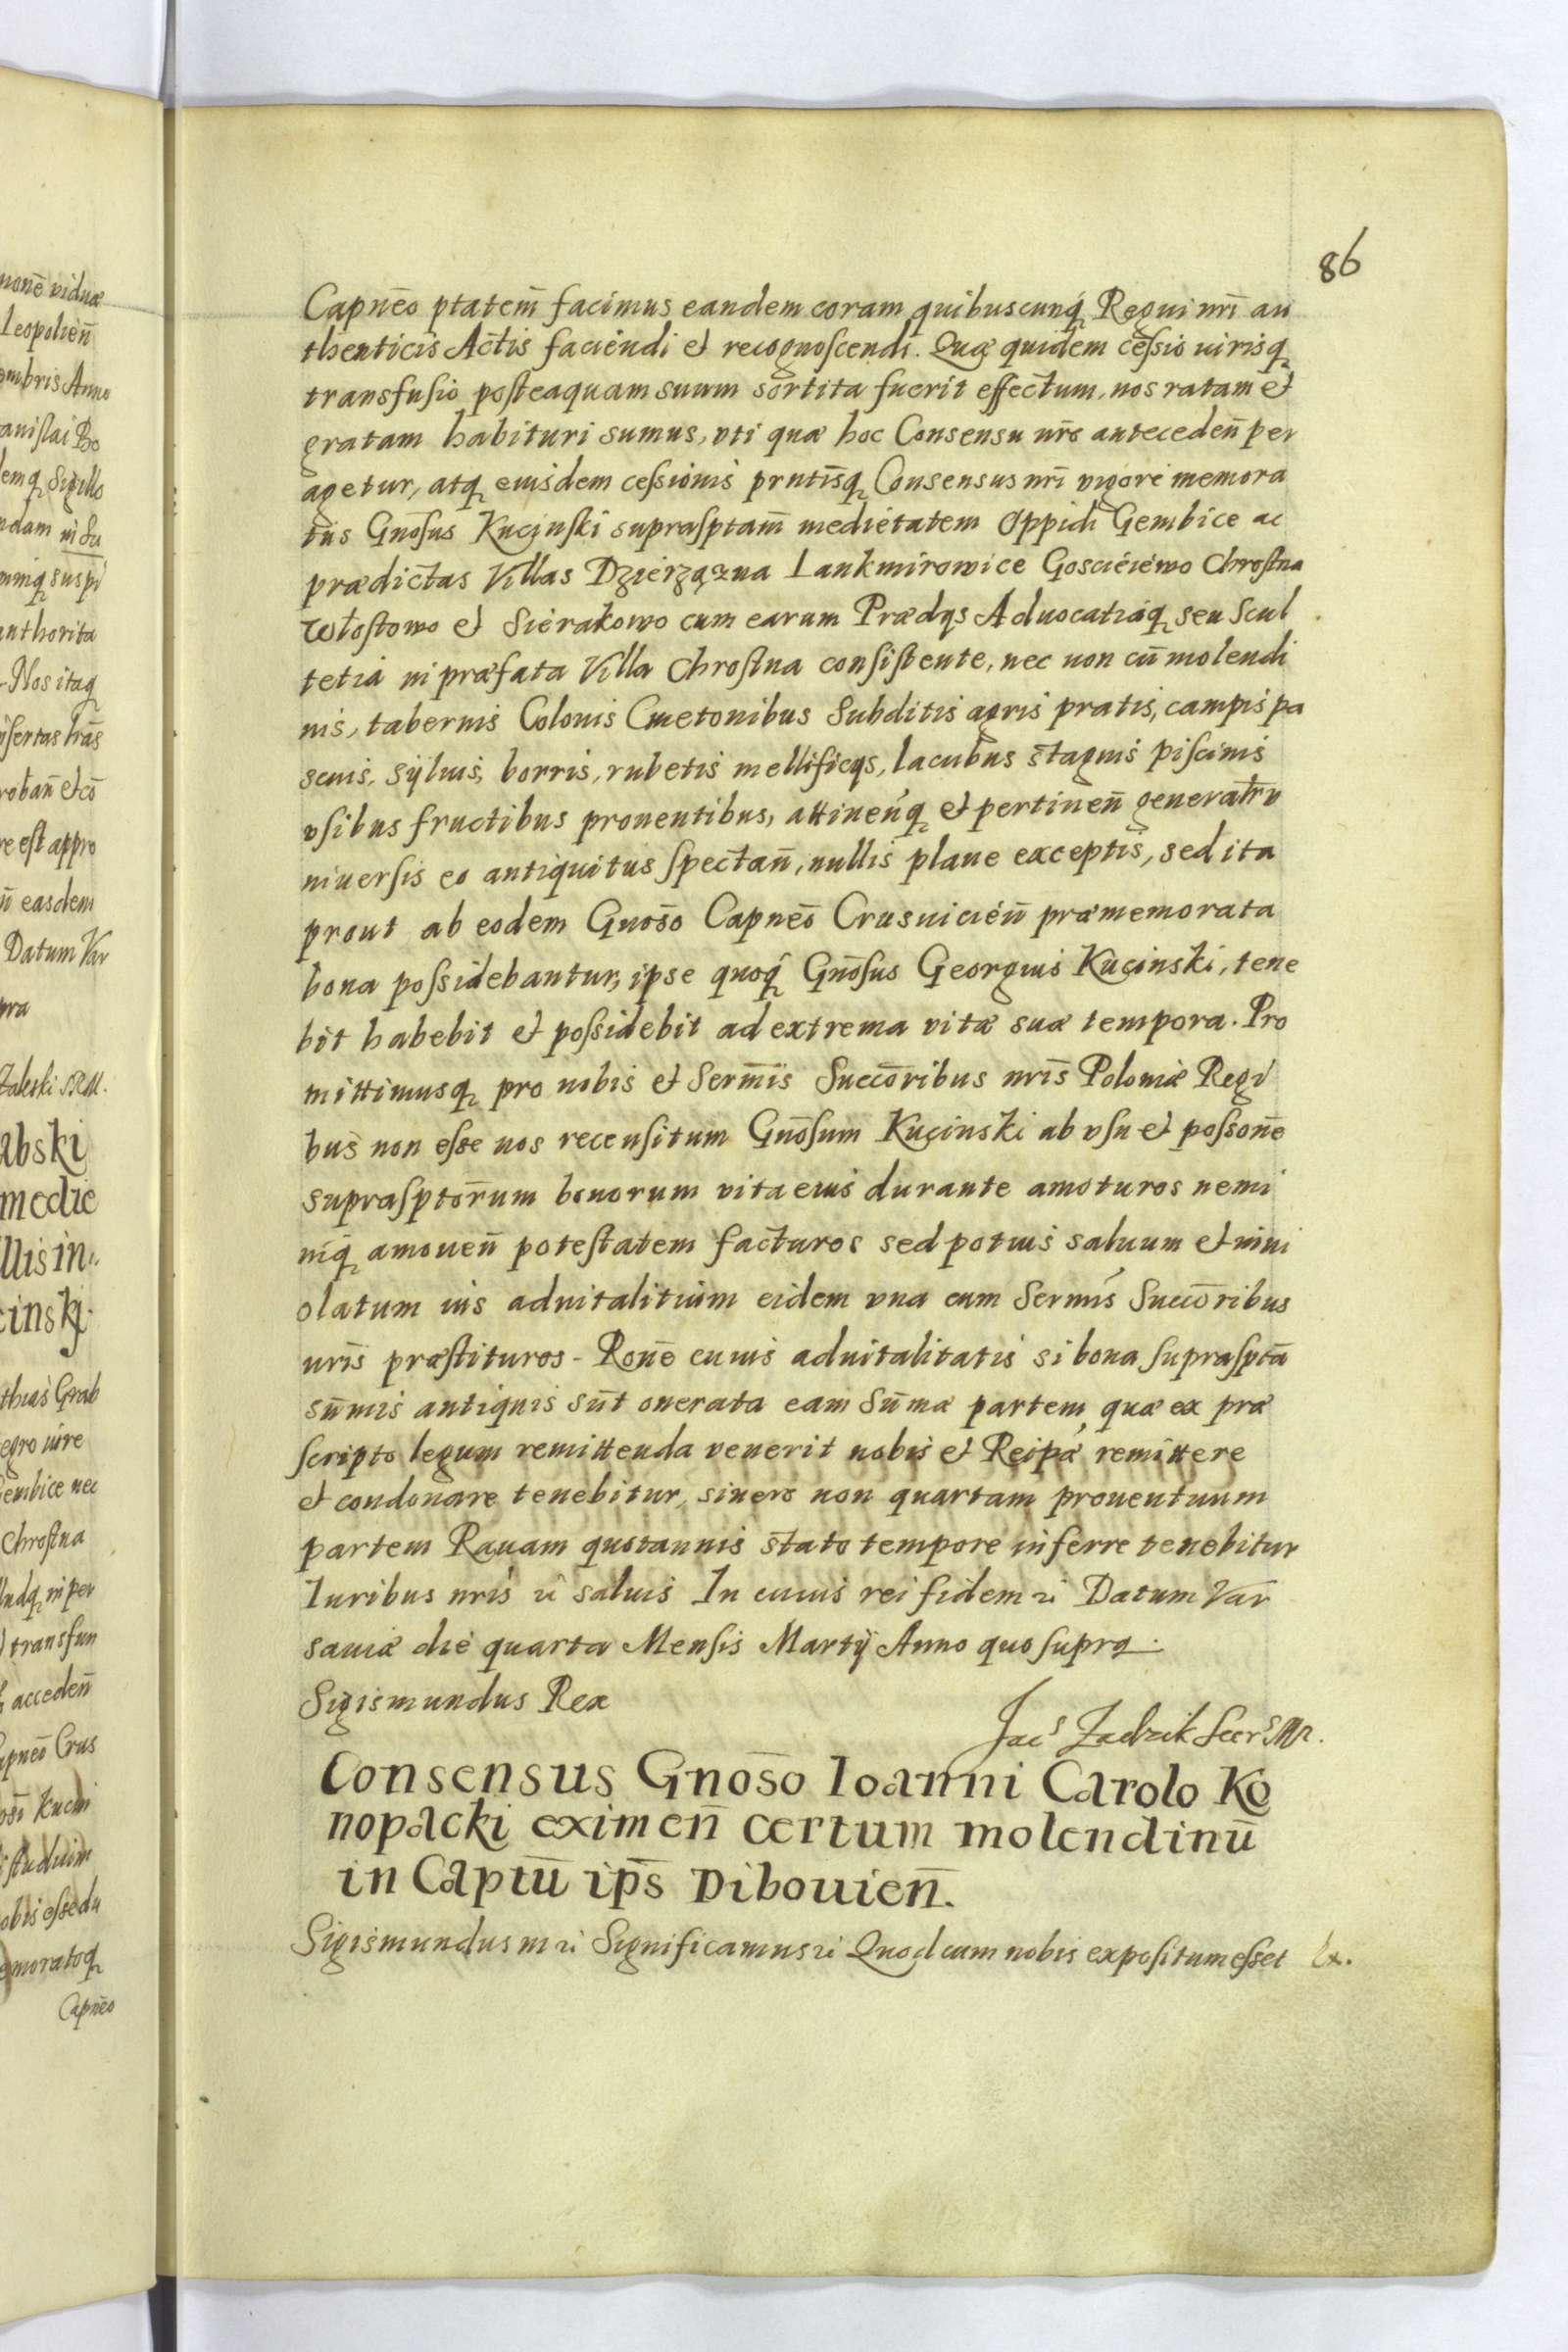 86
Capnēo ptatem̄ facimus eandem coram quibuscunq́ Regni nr̄i au
thenticis Actis faciendi et recognoscendi. Quæ quidem cessio iurisq
transfusio posteaquam suum sortita fuerit effectum, nos ratam et
gratam habituri sumus, vti quæ hoc Consensu nr̄o anteceden̄ per
agetur, atq eiusdem cessionis prntīsq Consensus nr̄i vigore memora
tus Gnōsus Kucinski suprasptam̄ medietatem Oppidi Gembice ac
prædictas Villas Dzierzązna Lankmirowice Goscieiewo Chrostna
Włostowo et Sierakowo cum earum Prædijs Aduocatiáq seu Scul
tetia in præfata Villa Chrostna consistente, nec non cū molendi
nis, tabernis Colonis Cmetonibus Subditis agris pratis, campis pa
scuis, syluis, borris, rubetis mellificijs, lacubus stagnis piscinis
vsibus fructibus prouentibus, attinen̄q et pertinen̄ generatr̄ v
niuersis eo antiquitus spectan̄, nullis plane exceptis, sed ita
prout ab eodem Gnosō Capnēo Crusuicien̄ præmemorata
bona possidebantur, ipse quoq́ Gnōsus Georgius Kucinski, tene
bit habebit et possidebit ad extrema vitæ suæ tempora. Pro
mittimusq pro nobis et Serm̄is Succōribus nrīs Poloniæ Regi
bus non esse nos recensitum Gnōsum Kucinski ab vsu et possonē
supraspto͞rum bonorum vita eius durante amoturos nemi
niq́ amouen̄ potestatem facturos sed potius saluum et inui
olatum ius aduitalitium eidem vna cum Sermis Succōribus
nrīs præstituros - Ronē cuius aduitalitatis si bona supraspta
sūmis antiquis sūt onerata eam Sūmæ partem, quæ ex præ
scripto legum remittenda venerit nobis et Reipǽ remittere
et condonare tenebitur, si vero non quartam prouentuum
partem Rauam quotannis stato tempore inferre tenebitur
Iuribus nris ꝛ̄ saluis In cuius rei fidem ꝛ̄ Datum Var
sauiæ die quarta Mensis Martij Anno quo supra.
Sigismundus Rex
Jac⁠s Zadzik Secr S M R.
Consensus Gnōso Ioanni Carolo Ko
nopacki eximen̄ certum molendinū
in Captū ip̄s Dibouien̄.
Sigismundus III ꝛ̄ Significamus ꝛ̄ Quod cum nobis expositum esset Ex.